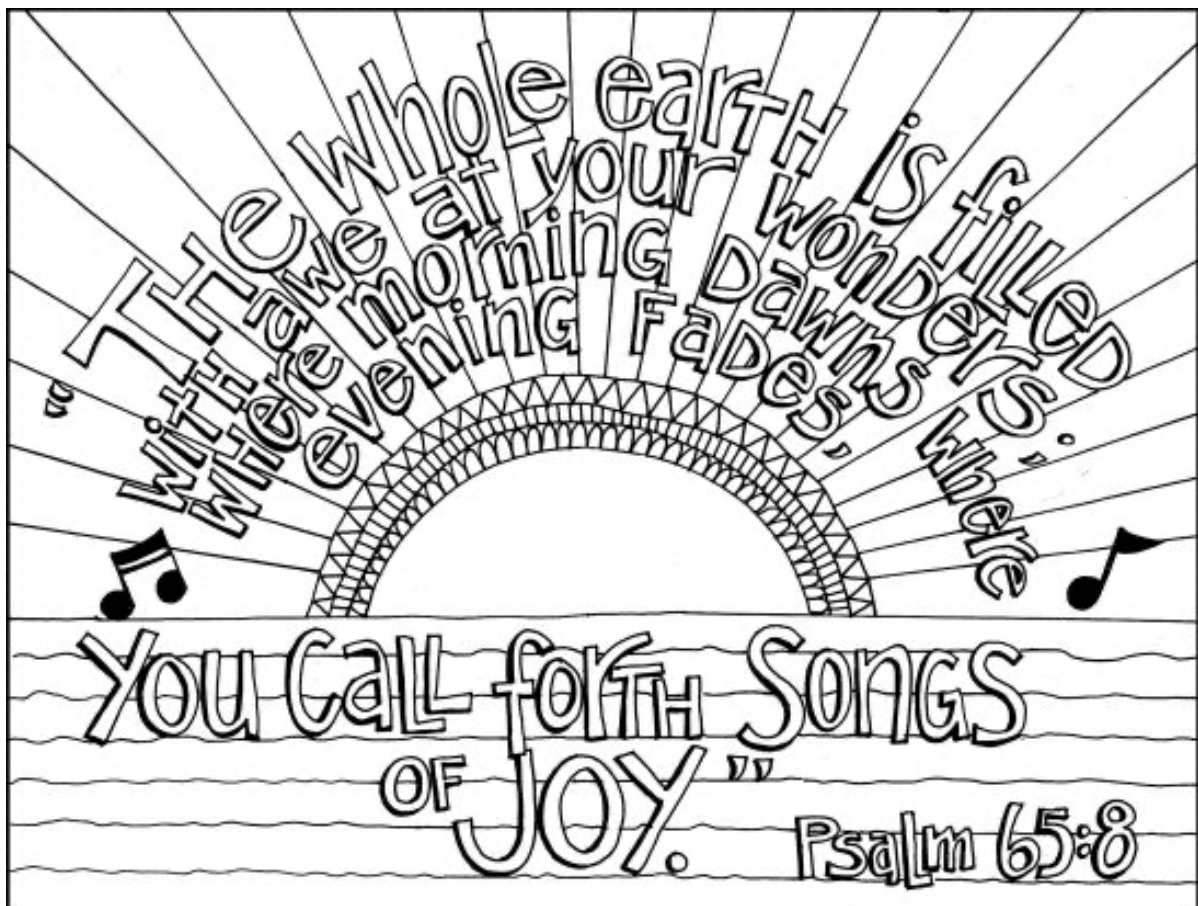 "The whole earth is filled
with awe at your wonders;
where morning dawns, where
evening fades,
You call forth songs
of joy."
Psalm 65:8